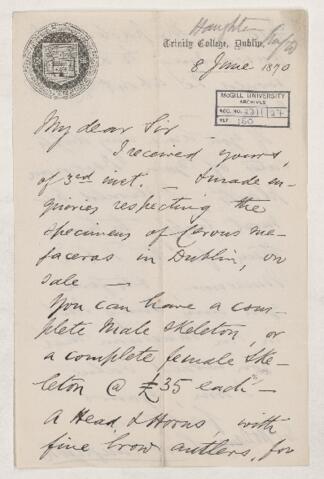 Haughton
Trinity College, Dublin.
8 June 1870
McGILL UNIVERSITY
ARCHIVES
ACC. NO. 2311 / 27
REF. 160
My dear Sir
I received yours
of 3rd inst. — I made in-
quiries respecting the
specimens of Cervus me-
gaceros in Dublin, on
sale —
You can have a com-
plete Male Skeleton, or
a complete female Ske-
leton @ £35 each —
a Head & Horns, with
fine brow antlers, for